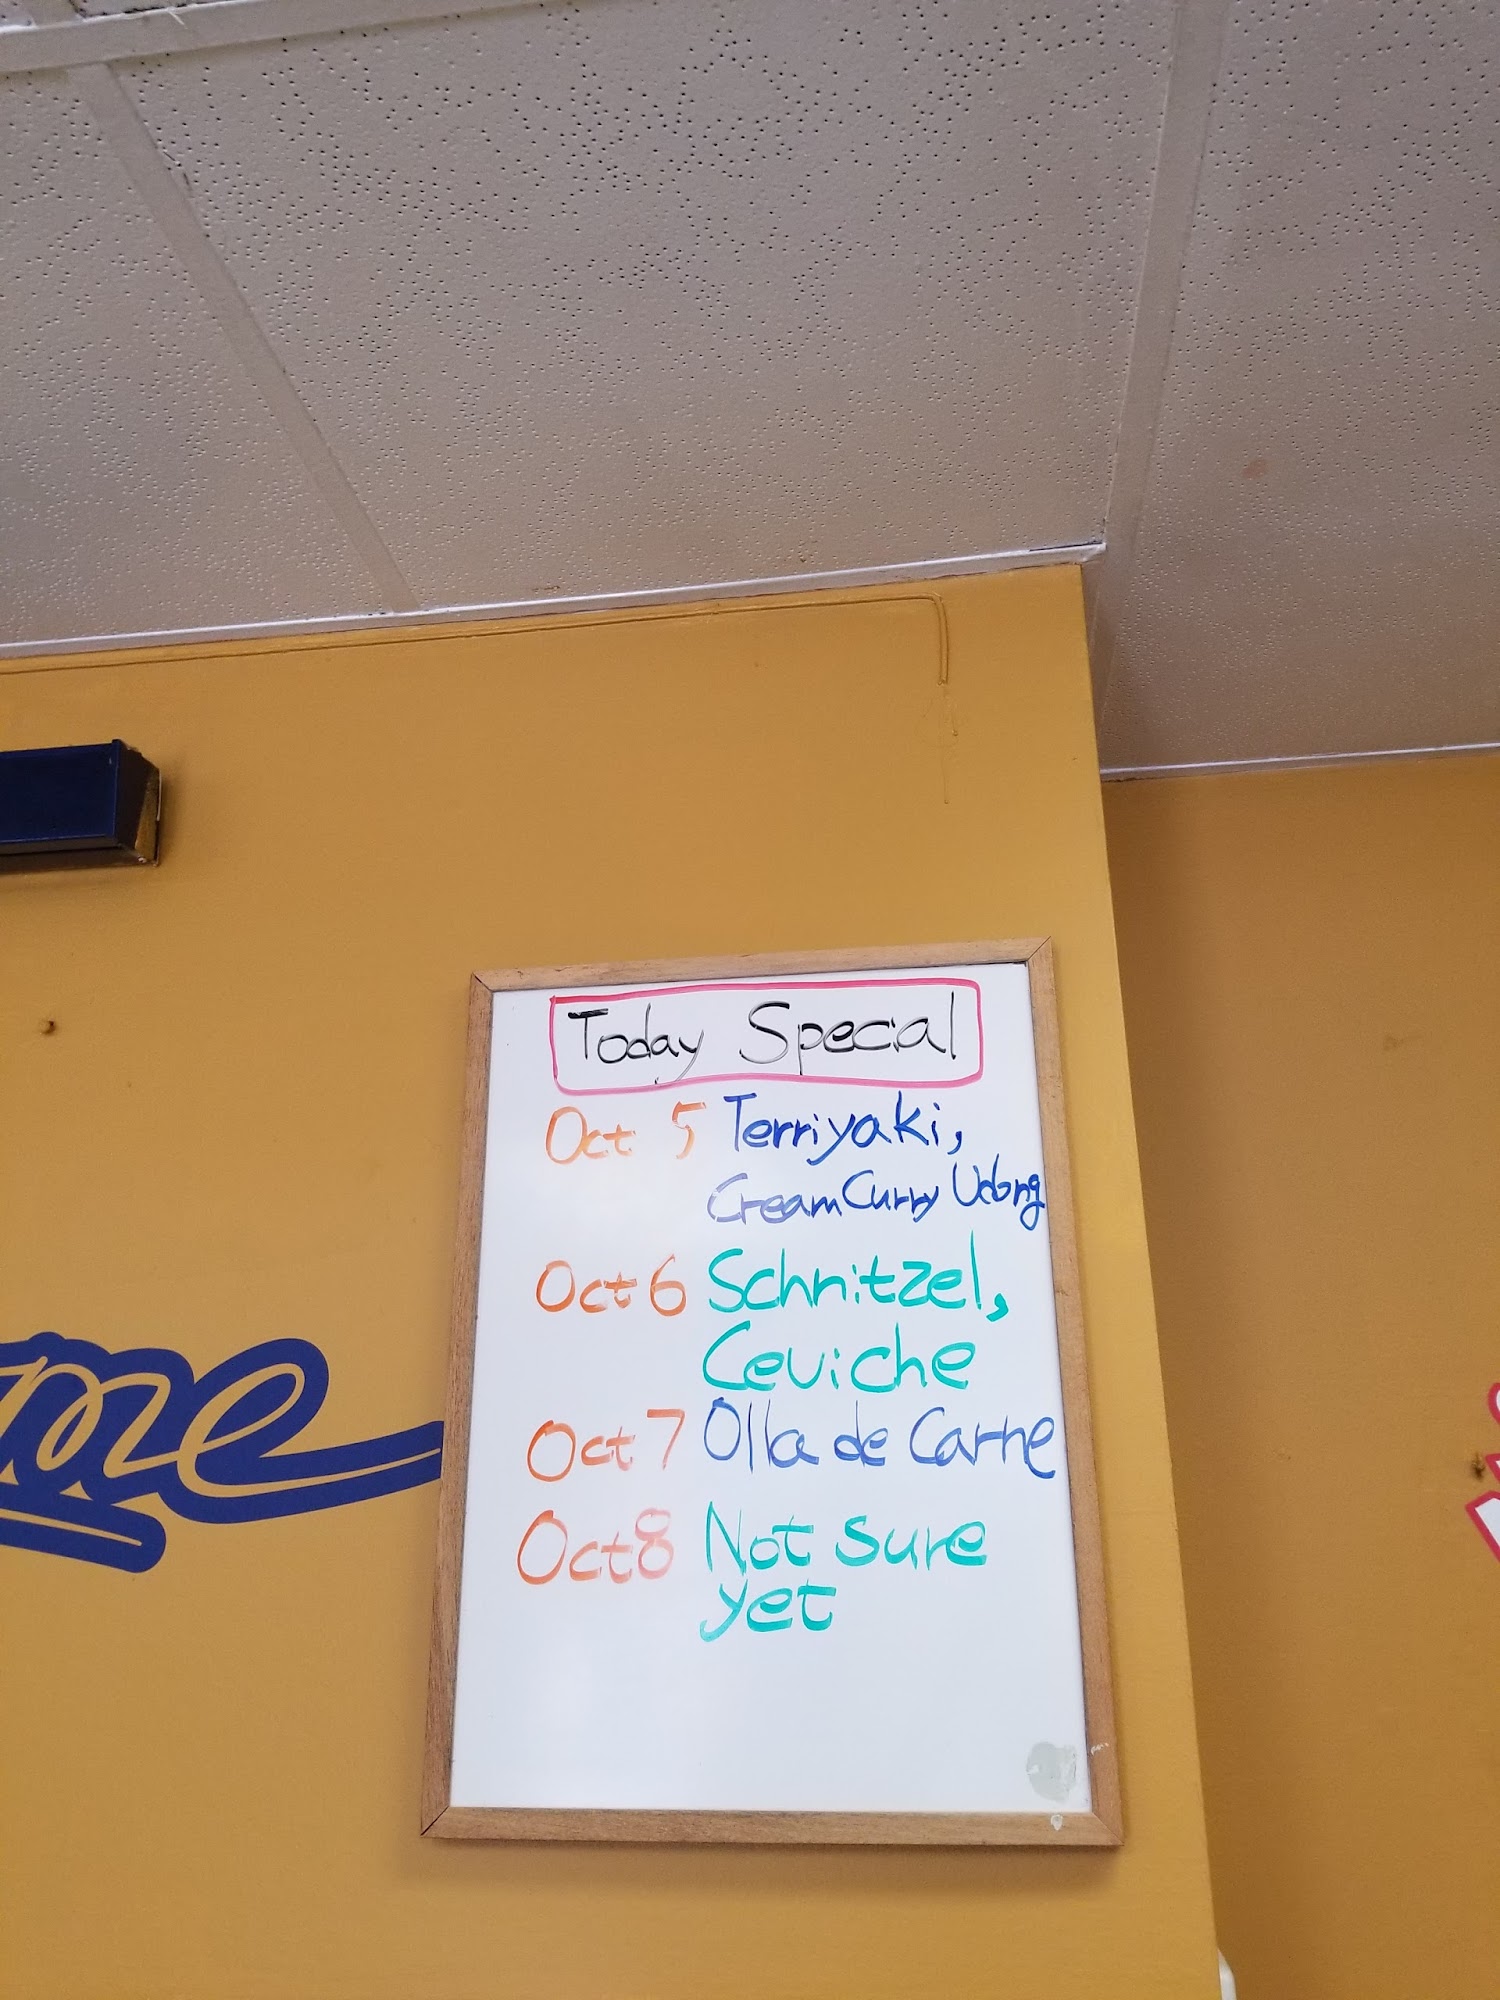 Today Special
Oct 5 Terriyaki,
Cream Curry Udong
Oct 6 Schnitzel,
Ceviche
Oct 7 Olla de Carne
Oct 8 Not Sure
yet